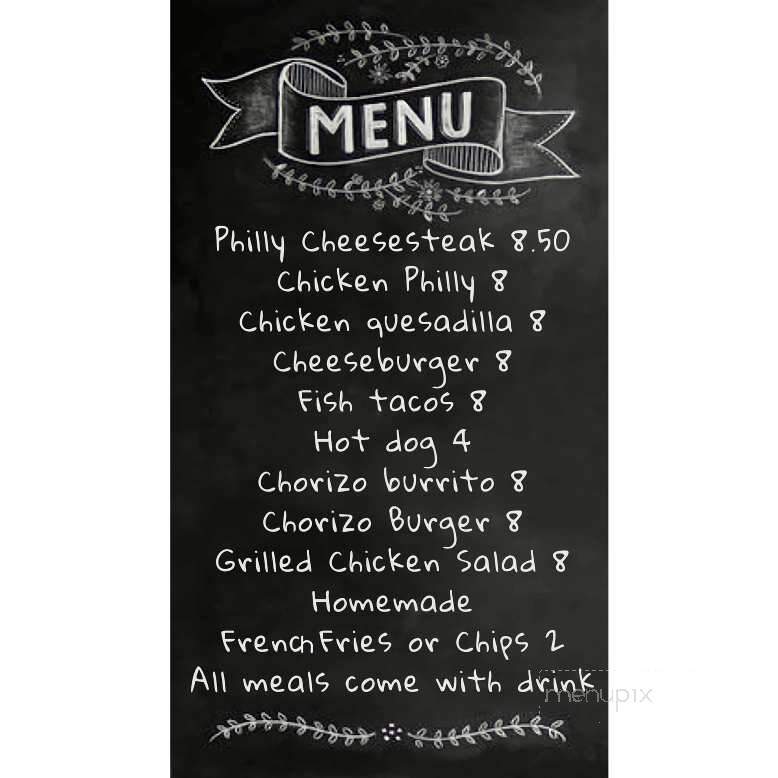 MENU
Philly Cheesesteak 8.50
Chicken Philly 8
Chicken quesadilla 8
Cheeseburger 8
Fish tacos 8
Hot dog 4
Chorizo burrito 8
Chorizo Burger 8
Grilled Chicken Salad 8
Homemade
French Fries or Chips 2
All meals come with drink
menupix